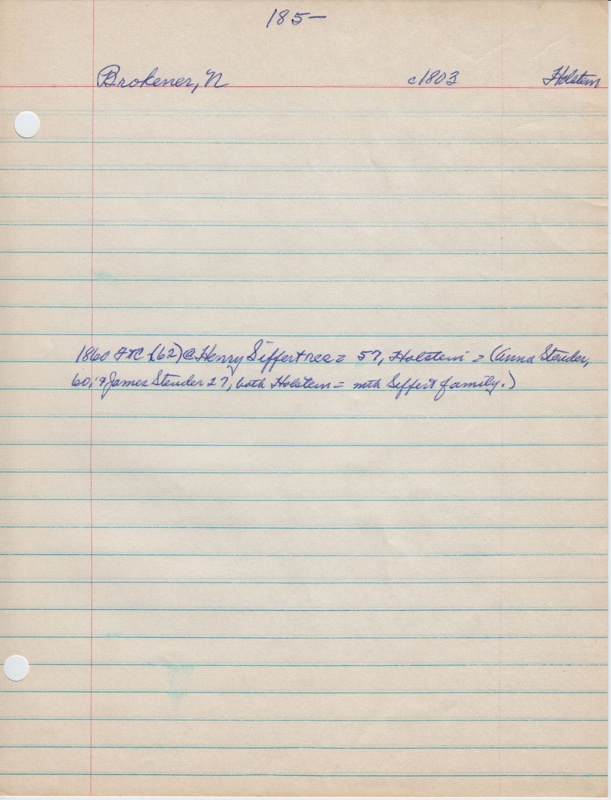 185-
Brokener, N c1803 Holstein
1860 (62) @ Henry Siffert res = 57, Holstein = (Anna Steuder,
60, & James Steuder 27, both Holstein = with Seffert family.)